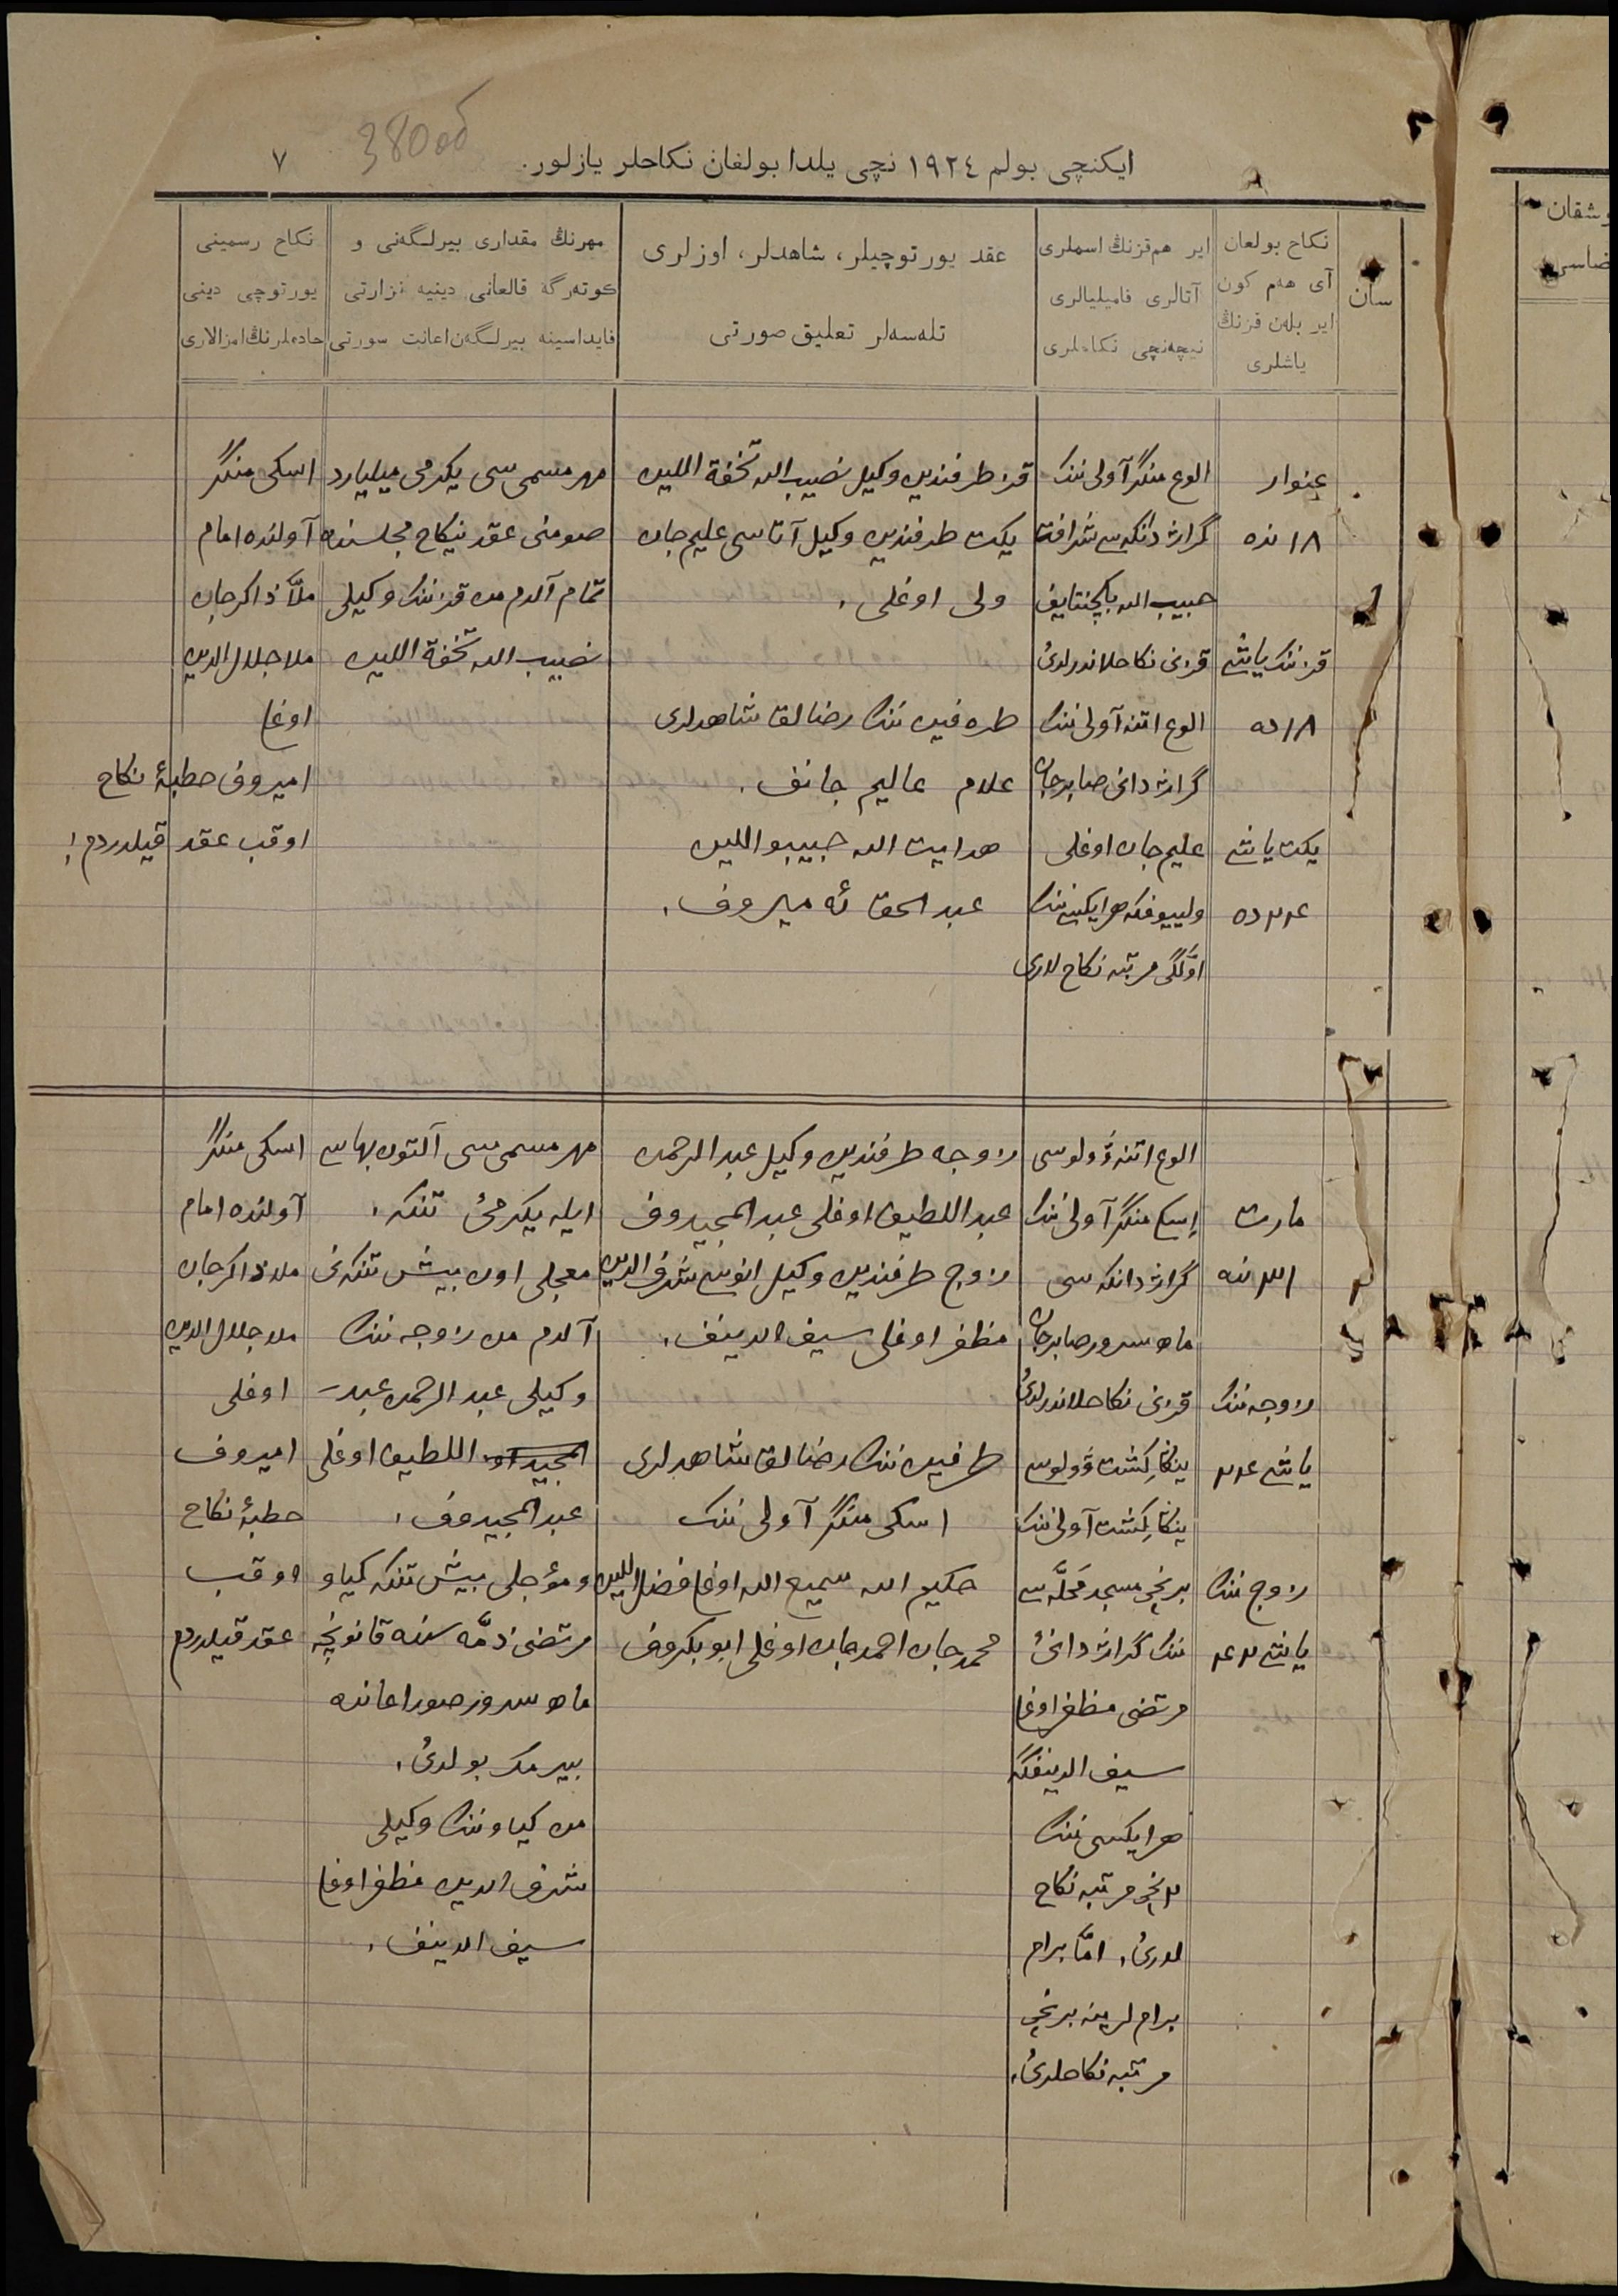 380 об
ایكنچی بولم ۱۹۲٤ نچی یلدا بولغان نكاحلر یازلور.
۷
سان
نكاح بولعان
آی هەم كون
ایر بلەن قزنڭ
یاشلری
ایر هەم قزنڭ اسملری
آتالری فامیلیالری
نیچەنچی نكاحلری
عقد یورتوچیلر، شاهدلر، اوزلری
تلەسەلر تعلیق صورتی
مهرنڭ مقداری بیرلگەنی و
كوتەرگە قالعانی دینیە نزارتی
فایداسینە بیرلگەن اعانت سورتی
نكاح رسمینی
یورتوچی دینی
خادملرنڭ امزالاری
۱
عنوار
۱۸ نده
قزننك یاشی
۱۸ ده
یكت یاشی
۲۴ ده
الوع منگر آولی ننك
گراژدانكەسی شرافت
حبیب الله بایچنتایف
قزی نكاحلاندرلدی
الوع اتنه آولی ننك
گراژدانی صابرجان
علیم جان اوغلی
ولییوفكه هر ایكیسی ننك
اوّلگی مرتبه نكاح لاری
قز طرفندین وكیل نصیب الله تحفة اللین
یكت طرفندین وكیل آتاسی علیم جان
ولی اوغلی.
طرفین ننك رضالق شاهدلری
علام عالیم جانف.
هدایت الله حبیبواللین
عبدالحق میروف.
مهر مسمی سی یكرمی میلیارد
صومنی عقد نیكاح مجلسنده
تمام آلدم من قزننك وكیلی
نصیب الله تحفة اللین
اسكی منگر
آولنده امام
ملّا ذاكرجان
ملا جلال الدین
اوغلی
امیروف خطبۀ نكاح
اوقب عقد قیلدردم!
۲
مارت
زوجه ننك
یاشی ۲۴
زوج ننك
یاشی ۴۲
الوع اتنه ؤولوسی
اسكی منگر آولی ننك
گراژدانكه سی
ماه سرور صابرجان
قزی نكاحلاندرلدی
ینكا كشت ؤولوسی
ینكا كشت آولی ننك
برنچی مسجد محلّه سی
ننك گراژدانی
مرتضی مظفر اوغلی
سیف الدینفكه
هر ایكسی ننك
۲نچی مرتبه نكاح
لاری. امّا برام
برام لرینه برنچی
مرتبه نكاحلری.
زوجه طرفندین وكیل عبدالرحمن
عبداللطیف اوغلی عبدالمجیدوف
زوج طرفندین وكیل انوسی شرف الدین
مظفر اوغلی سیف الدینف.
طرفین ننك رضالق شاهدلری
اسكی منگر آولی ننك
حكیم الله سمیع الله اوغلی فضل اللین
محمدجان احمدجان اوغلی ابوبكروف
مهر مسمی سی آلتون بهاسی
ایله یكرمی تنكه.
معجلی اون بیش تنكه نی
آلدم من زوجه ننك
وكیلی عبدالرحمن عبد-
اللطیف اوغلی
عبدالمجیدوف.
و مؤجلی بیش تنكه كیاو
مرتضی ذمّه سنه قانونچه
ماه سرور صوراعانده
بیرمك بولدی.
من كیاو ننك وكیلی
شرف الدین مظفر اوغلی
سیف الدینف.
اسكی منگر
آولنده امام
ملا ذاكرجان
ملا جلال الدین
اوغلی
امیروف
خطبۀ نكاح
اوقب
عقد قیلدردم